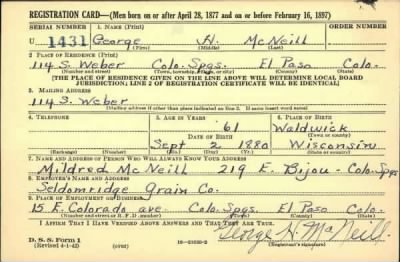 REGISTRATION CARD—(Men born on or after April 28, 1877 and on or before February 16, 1897)
SERIAL NUMBER 1. NAME (Print) ORDER NUMBER
U 1431 George H. McNeill
(First) (Middle) (Last)
2. PLACE OF RESIDENCE (Print)
114 S. Weber Colo. Spgs. El Paso Colo.
(Number and street) (Town, township, village, or city) (County) (State)
[THE PLACE OF RESIDENCE GIVEN ON THE LINE ABOVE WILL DETERMINE LOCAL BOARD
JURISDICTION; LINE 2 OF REGISTRATION CERTIFICATE WILL BE IDENTICAL]
3. MAILING ADDRESS
114 S. Weber
(Mailing address if other than place indicated on line 2. If same insert word same)
4. TELEPHONE 5. AGE IN YEARS 6. PLACE OF BIRTH
61 Waldwick
DATE OF BIRTH (Town or county)
Sept 2 1880 Wisconsin
(Exchange) (Number) (Mo.) (Day) (Yr.) (State or country)
7. NAME AND ADDRESS OF PERSON WHO WILL ALWAYS KNOW YOUR ADDRESS
Mildred McNeill 219 E. Bijou - Colo. Spgs
8. EMPLOYER'S NAME AND ADDRESS
Seldomridge Grain Co.
9. PLACE OF EMPLOYMENT OR BUSINESS
15 E. Colorado ave. Colo. Spgs. El Paso Colo
(Number and street or R. F. D. number) (Town) (County) (State)
I AFFIRM THAT I HAVE VERIFIED ABOVE ANSWERS AND THAT THEY ARE TRUE.
George H. McNeill
D. S. S. Form 1
(Revised 4-1-42) (over) (Registrant's signature)